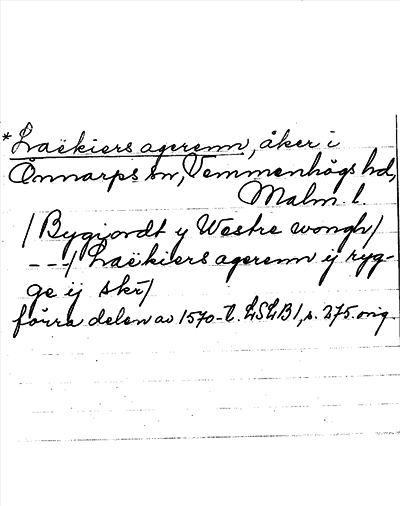 *Laëkiers agerenn, åker i
Önnarps sn, Vemmenhögs hd,
Malm. l.
/Bygiordt y Westre wongh/
---/Laëkiers agerenn ij ryg-
ge ij skr/
förra delen av 1570-t. LSLB1, s. 275. orig.